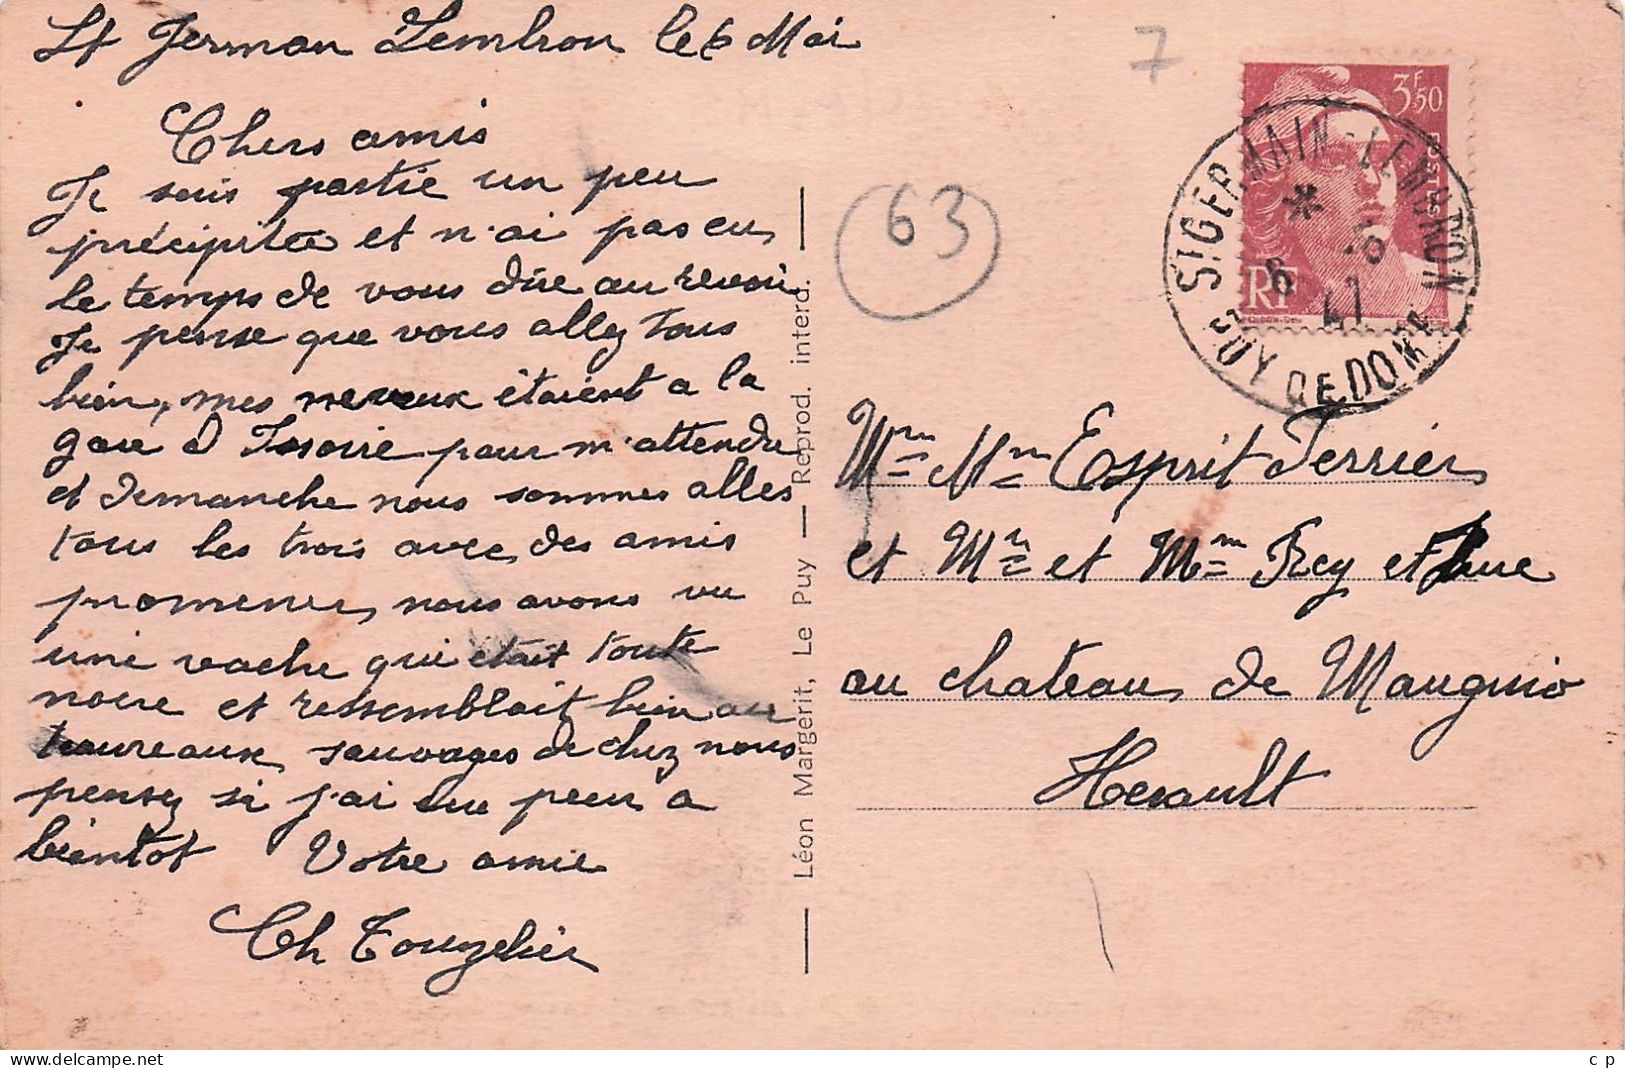 St Jerman Lembron le 6 Mai
7
Chers amis
Je suis partie un peu
précipitée et n'ai pas eu
le temps de vous dire au revoir
Je pense que vous allez tous
bien, mes neveux étaient a la
gare D Issoire pour m'attendre
et demanche nous sommes alles
tous les trois avec des amis
promener, nous avons vu
une vache qui était toute
noire et ressemblait bien au
taureaux sauvages de chez nous
pensez si j'ai eu peur a
bientot Votre amie
Ch Touzelier
63
Léon Margerit, Le Puy — Reprod. interd.
3F,50
POSTES
RF
ST GERMAIN-LEMBRON
6 -5
47
PUY DE DOME
Mr Mme Esprit Terrier
et Mr et Mme Rey et
au chateau de Mauguio
Herault
c p